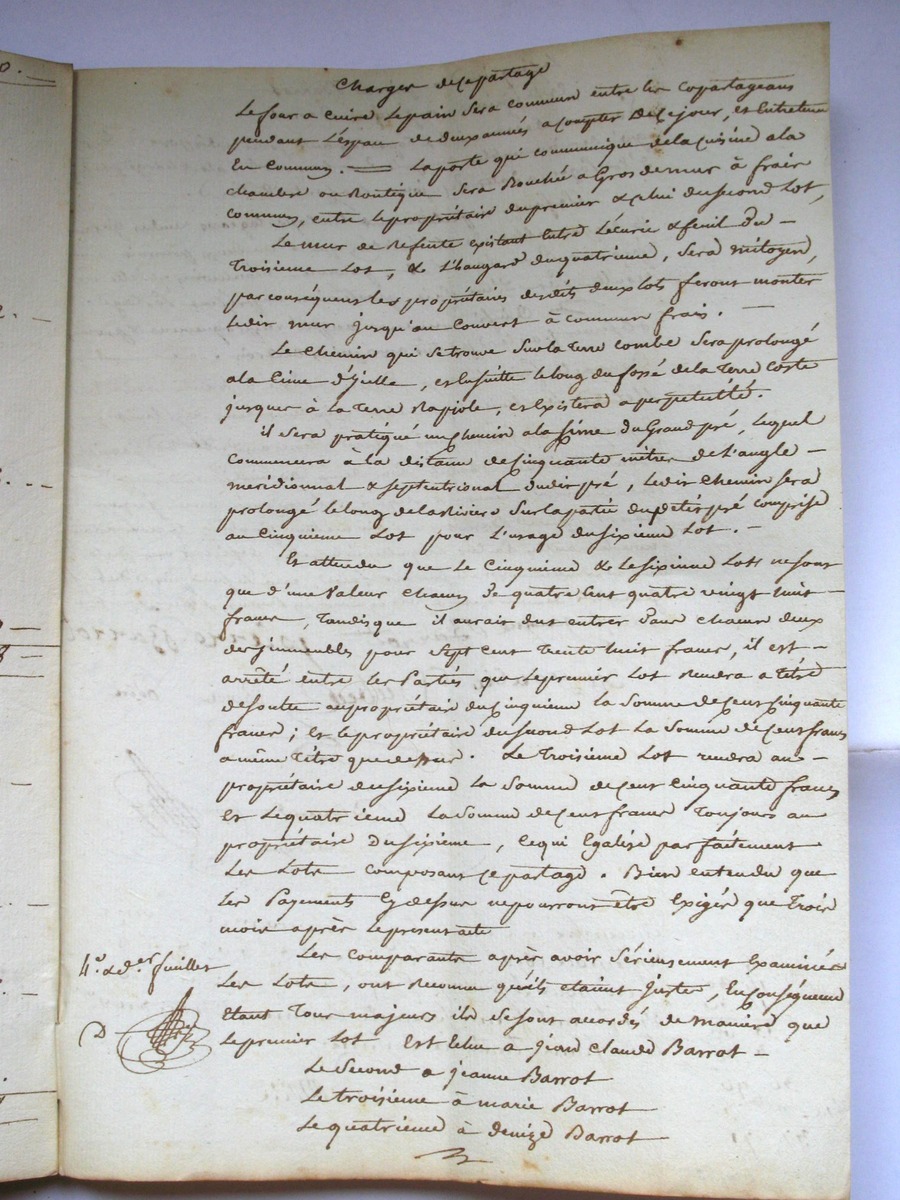 Charges de ce partage
Le four a cuire Le pain Sera commun entre les copartageans
pendant L'espace de deux années a compter De ce jour, et Entretenu
En Commun. = La porte qui communique de la cuisine a la
chambre ou Boutique Sera Bouchée a Gros de mur à frais
Communs, entre Le propriétaire du premier & celui du Second Lot,
Le mur de Refente existant Entre L'écurie & fenil du -
Troisieme Lot, & L'hangard du quatrieme, Sera mitoyen,
par conséquent les propriétaires desdits deux Lots feront monter
Ledit mur jusqu'au Couvert à commun frais. -
Le Chemin qui Se trouve Sur la Terre combe Sera prolongé
a la Cime d'icelle, et Ensuitte Le long du fossé de la Terre Coste
jusques à La Terre Rapiole, et Existera a perpetuitté.
il Sera pratiqué un Chemin a la Sime du Grand pré, Lequel
Commencera à la distance de Cinquante mètres de L'angle -
meridionnal & septentrional dudit pré, Ledit Chemin Sera
prolongé Le long de la Riviere Sur la patie du petit pré comprise
au Cinquieme Lot pour L'usage du Sixieme Lot. -
Et attendu que Le Cinquieme & Le Sixieme Lots ne sont
que d'une Valeur Chacun De quatre Cent quatre vingt huit -
francs, Tandis que il aurais dut entrer Dans chacun deux
des jmmeubles pour Sept Cent Trente huit francs, il est -
arrêté entre Les Parties que Le premier Lot Rendra a Titre
de Soulte au propriétaire du Cinquieme la Somme de Cent Cinquante
francs ; Et le propriétaire du Second Lot La Somme de Cent francs
a même Titre que dessus. Le Troisieme Lot rendra au -
propriétaire du Sixieme La Somme de Cent Cinquante francs
Et Le quatrieme La Somme de Cent francs Toujours au
propriétaire du Sixieme, Ce qui Egalise parfaitement
Les Lots composant ce partage. Bien entendu que
Les Payements Cy dessus ne pourront être Exigés que Trois
mois après Le present acte
Les Comparants après avoir Sérieusement Examinés
Les Lots, ont Reconnu qu'ils etaient Justes, En Conséquence
Etant Tous majeurs ils Se sont accordés de maniere que
Le premier Lot Est Echu à jean Claude Barrot -
Le Second a jeanne Barrot
Le troisieme à marie Barrot
Le quatrieme à denize Barrot
4e. & der. feuillet
D